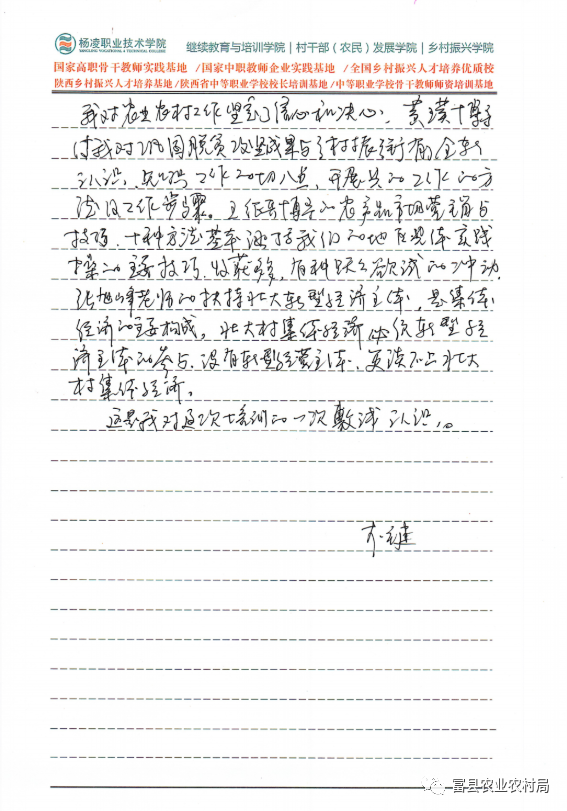 杨凌职业技术学院 继续教育与培训学院|村干部（农民）发展学院|乡村振兴学院
YANGLING VOCATIONAL & TECHNICAL COLLEGE
国家高职骨干教师实践基地 /国家中职教师企业实践基地 /全国乡村振兴人才培养优质校
陕西乡村振兴人才培养基地/陕西省中等职业学校校长培训基地/中等职业学校骨干教师师资培训基地
我对农业农村工作坚定了信心和决心，黄
我对巩固脱贫攻坚成果与乡村振兴有
认识， 工作的切入点，开展 的工作的方
法及工作步骤。王 博 的农产品市场营销与
技巧，十种方法基本涵括我们的地 具体实践
操 的主要技巧，收获 ，有种跃跃欲试的冲动，
张旭峰老师的扶持壮大新型经济主体，是集体
经济的主要构成，壮大村集体经济必须新型经
济主体的参与，没有新型经营主体，莫谈不上壮大
村集体经济。
这是我对这次培训的一次 浅认识。
富县农业农村局